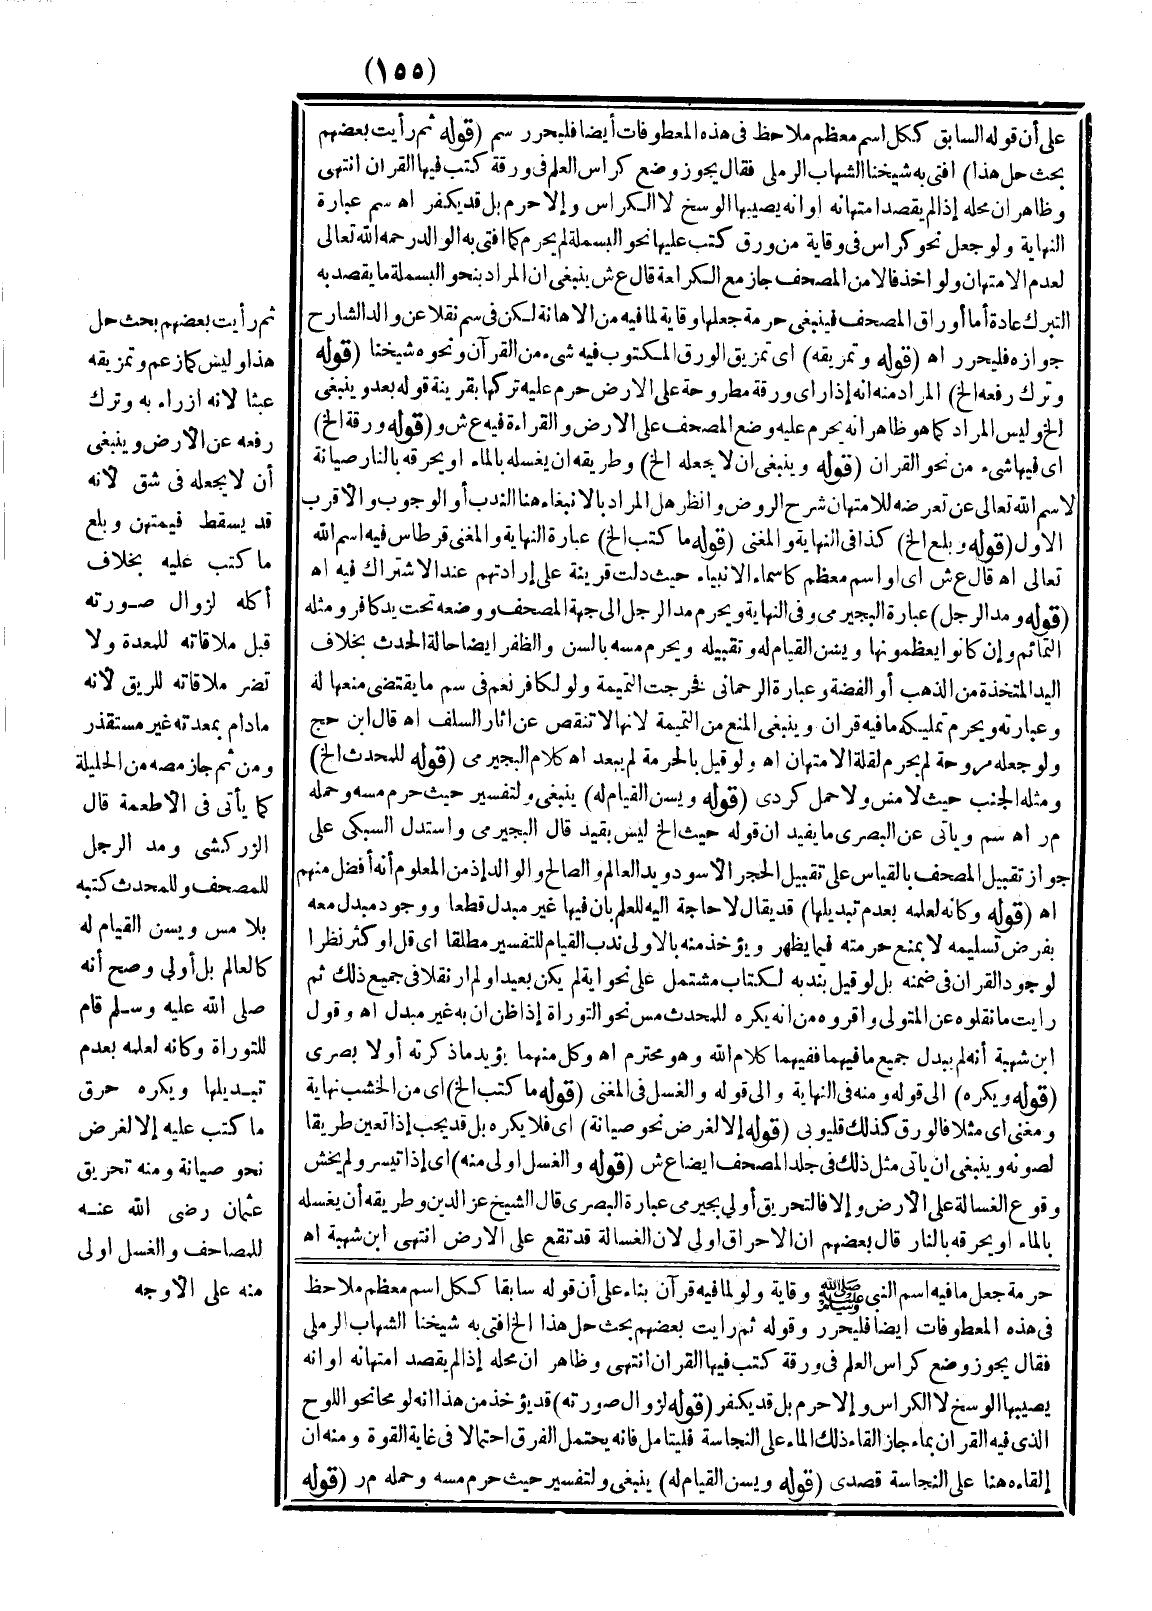 (١٥٥)
على أن قوله السابق ككل اسم معظم ملاحظ فى هذه المعطوفات أيضا فليحرر سم (قوله ثم رأيت بعضهم
بحث حل هذا) افتى به شيخنا الشهاب الرملى فقال يجوز وضع كراس العلم فى ورقة كتب فيها القران انتهى
وظاهر ان محله إذا لم يقصد امتهانه او انه يصيبها الوسخ لا الكراس وإلا حرم بل قد يكفر اه سم عبارة
النهاية ولو جعل نحو كراس فى وقاية من ورق كتب عليها نحو البسملة لم يحرم كما افتى به الوالد رحمه الله تعالى
لعدم الامتهان ولو اخذ فالا من المصحف جاز مع الكراهة قال ع ش ينبغى ان المراد بنحو البسملة ما يقصد به
التبرك عادة أما أوراق المصحف فينبغى حرمة جعلها وقاية لما فيه من الاهانة لكن فى سم نقلا عن والد الشارح
جوازه فليحرر اه (قوله وتمزيقه) اى تمزيق الورق المكتوب فيه شىء من القرآن ونحوه شيخنا (قوله
وترك رفعه الخ) المراد منه انه إذا راى ورقة مطروحة على الارض حرم عليه تركها بقرينة قوله بعد وينبغى
الخ وليس المراد كما هو ظاهر انه يحرم عليه وضع المصحف على الارض والقراءة فيه ع ش و(قوله ورقة الخ)
اى فيها شىء من نحو القران (قوله وينبغى ان لا يجعله الخ) وطريقه ان يغسله بالماء او يحرقه بالنار صيانة
لاسم الله تعالى عن تعرضه للامتهان شرح الروض وانظر هل المراد بالانبغاء هنا الندب أو الوجوب والاقرب
الاول (قوله وبلع الخ) كذا فى النهاية والمغنى (قوله ما كتب الخ) عبارة النهاية والمغنى قرطاس فيه اسم الله
تعالى اه قال ع ش اى او اسم معظم كاسماء الانبياء حيث دلت قرينة على إرادتهم عند الاشتراك فيه اه
(قوله ومد الرجل) عبارة البجيرمى وفى النهاية ويحرم مد الرجل الى جهة المصحف ووضعه تحت يد كافر ومثله
التمائم وإن كانوا يعظمونها ويسن القيام له وتقبيله ويحرم مسه بالسن والظفر ايضا حالة الحدث بخلاف
اليد المتخذة من الذهب أو الفضة وعبارة الرحمانى فخرجت التميمة ولو لكافر نعم فى سم ما يقتضى منعها له
وعبارته ويحرم تمليكه ما فيه قران وينبغى المنع من التميمة لانها لا تنقص عن اثار السلف اه قال ابن حج
ولو جعله مروحة لم يحرم لقلة الامتهان اه ولو قيل بالحرمة لم يبعد اه كلام البجيرمى (قوله للمحدث الخ)
ومثله الجنب حيث لا مس ولا حمل كردى (قوله ويسن القيام له) ينبغى ولتفسير حيث حرم مسه وحمله
م ر اه سم وياتى عن البصرى ما يفيد ان قوله حيث الخ ليس بقيد قال البجيرمى واستدل السبكى على
جواز تقبيل المصحف بالقياس على تقبيل الحجر الاسود ويد العالم والصالح والوالد إذ من المعلوم أنه أفضل منهم
اه (قوله وكانه لعلمه بعدم تبديلها) قد يقال لا حاجة اليه للعلم بان فيها غير مبدل قطعا ووجود مبدل معه
بفرض تسليمه لا يمنع حرمته فيما يظهر ويؤخذ منه بالاولى ندب القيام للتفسير مطلقا اى قل او كثر نظرا
لوجود القران فى ضمنه بل لو قيل بندبه لكتاب مشتمل على نحو اية لم يكن بعيدا ولم ار نقلا فى جميع ذلك ثم
رايت ما نقلوه عن المتولى واقروه من انه يكره للمحدث مس نحو التوراة إذا ظن ان به غير مبدل اه وقول
ابن شهبة أنه لم يبدل جميع ما فيهما ففيهما كلام الله وهو محترم اه وكل منهما يؤيد ما ذكرته أولا بصرى
(قوله ويكره) الى قوله ومنه فى النهاية والى قوله والغسل فى المغنى (قوله ما كتب الخ) اى من الخشب نهاية
ومغنى اى مثلا فالورق كذلك قليوبى (قوله إلا لغرض نحو صيانة) اى فلا يكره بل قد يجب إذا تعين طريقا
لصونه وينبغى ان ياتى مثل ذلك فى جلد المصحف ايضا ع ش (قوله والغسل اولى منه) اى إذا تيسر ولم يخش
وقوع الغسالة على الأرض وإلا فالتحريق أولى بجيرمى عبارة البصرى قال الشيخ عز الدين وطريقه أن يغسله
بالماء او يحرقه بالنار قال بعضهم ان الاحراق اولى لان الغسالة قد تقع على الارض انتهى ابن شهبة اه
ثم رأيت بعضهم بحث حل
هذا وليس كما زعم وتمزيقه
عبثا لانه ازراء به وترك
رفعه عن الارض وينبغى
أن لا يجعله فى شق لانه
قد يسقط فيمتهن وبلع
ما كتب عليه بخلاف
أكله لزوال صورته
قبل ملاقاته للمعدة ولا
تضر ملاقاته للريق لانه
مادام بمعدته غير مستقذر
ومن ثم جاز مصه من الحليلة
كما يأتى فى الاطعمة قال
الزركشى ومد الرجل
للمصحف وللمحدث كتبه
بلا مس ويسن القيام له
كالعالم بل أولى وصح أنه
صلى الله عليه وسلم قام
للتوراة وكانه لعلمه بعدم
تبديلها ويكره حرق
ما كتب عليه إلا لغرض
نحو صيانة ومنه تحريق
عثمان رضى الله عنه
للمصاحف والغسل اولى
منه على الاوجه
حرمة جعل ما فيه اسم النبى ﷺ وقاية ولو لما فيه قرآن بناء على أن قوله سابقا ككل اسم معظم ملاحظ
فى هذه المعطوفات ايضا فليحرر وقوله ثم رايت بعضهم بحث حل هذا الخ افتى به شيخنا الشهاب الرملى
فقال يجوز وضع كراس العلم فى ورقة كتب فيها القران انتهى وظاهر ان محله إذا لم يقصد امتهانه او انه
يصيبها الوسخ لا الكراس وإلا حرم بل قد يكفر (قوله لزوال صورته) قد يؤخذ من هذا انه لو محا نحو اللوح
الذى فيه القران بماء جاز القاء ذلك الماء على النجاسة فليتامل فانه يحتمل الفرق احتمالا فى غاية القوة ومنه ان
إلقاءه هنا على النجاسة قصدى (قوله ويسن القيام له) ينبغى ولتفسير حيث حرم مسه وحمله م ر (قوله